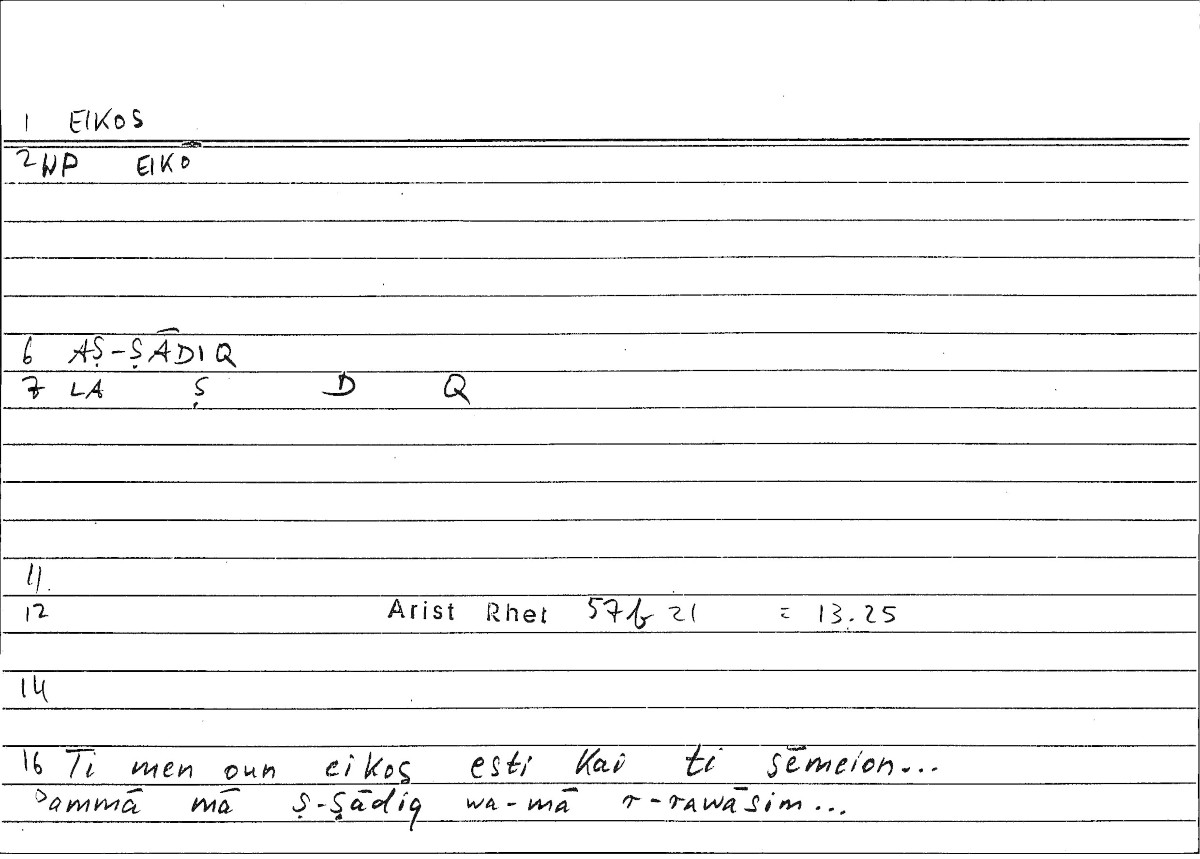 1 EIKOS
2 NP EIKŌ
6 AṢ-ṢĀDIQ
7 LA Ṣ D Q
11.
12 Arist Rhet 57b 21 = 13.25
14
16 Ti men oun eikos esti kai ti sēmeion...
ʾammā mā ṣ-ṣādiq wa-mā r-rawāsim...